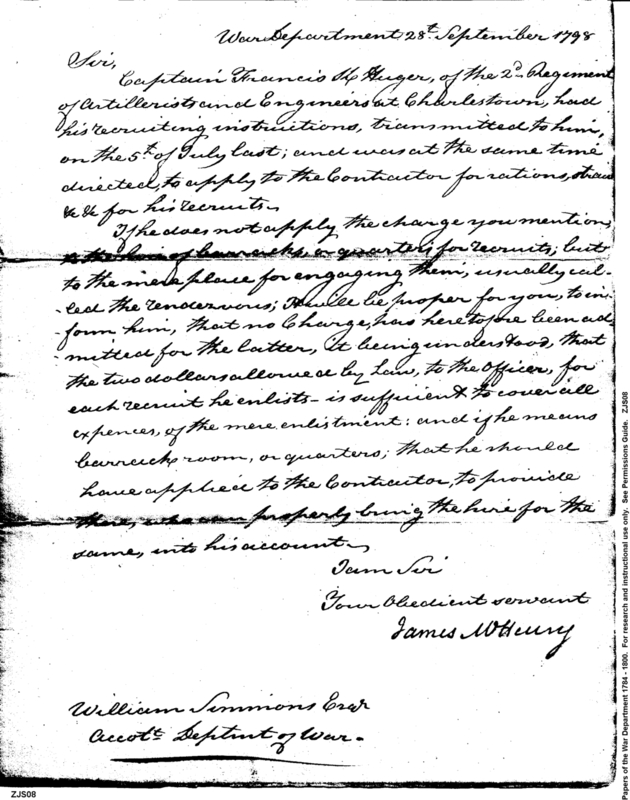 War Department 28th September 1798
Sir,
Captain Francis K Huger, of the 2d Regiment
of Artillerists and Engineers at Charlestown, had
his recruiting instructions, transmitted to him,
on the 5th of July last; and was at the same time
directed, to apply to the Contractor for rations, straw
&c &c for his recruits.
If he does not apply, the charge you mention,
to the hire of barracks, or quarters for recruits; but
to the mere place for engaging them, usually cal-
-led the rendezvous; It will be proper for you, to in-
-form him, that no Charge, has heretofore been ad-
-mitted for the latter, it being understood, that
the two dollars allowed by Law, to the Officer, for
each recruit he enlists - is sufficient to cover all
expences, of the mere enlistment: and if he means
barrack room, or quarters; that he should
have applied to the Contractor, to provide
them, who can properly bring the hire for the
same, into his account.
I am Sir
Your Obedient servant
James McHenry
William Simmons Esqr
Accots. Deptmt of War.
ZJS08
Papers of the War Department 1784 - 1800. For research and instructional use only. See Permissions Guide. ZJS08